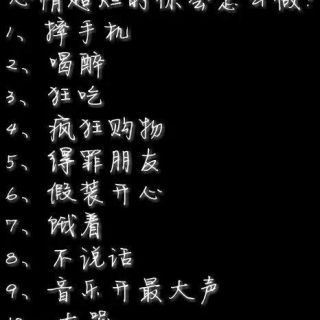 心情超烂的你会怎么做?
1、摔手机
2、喝醉
3、狂吃
4、疯狂购物
5、得罪朋友
6、假装开心
7、饿着
8、不说话
9、音乐开最大声
10、